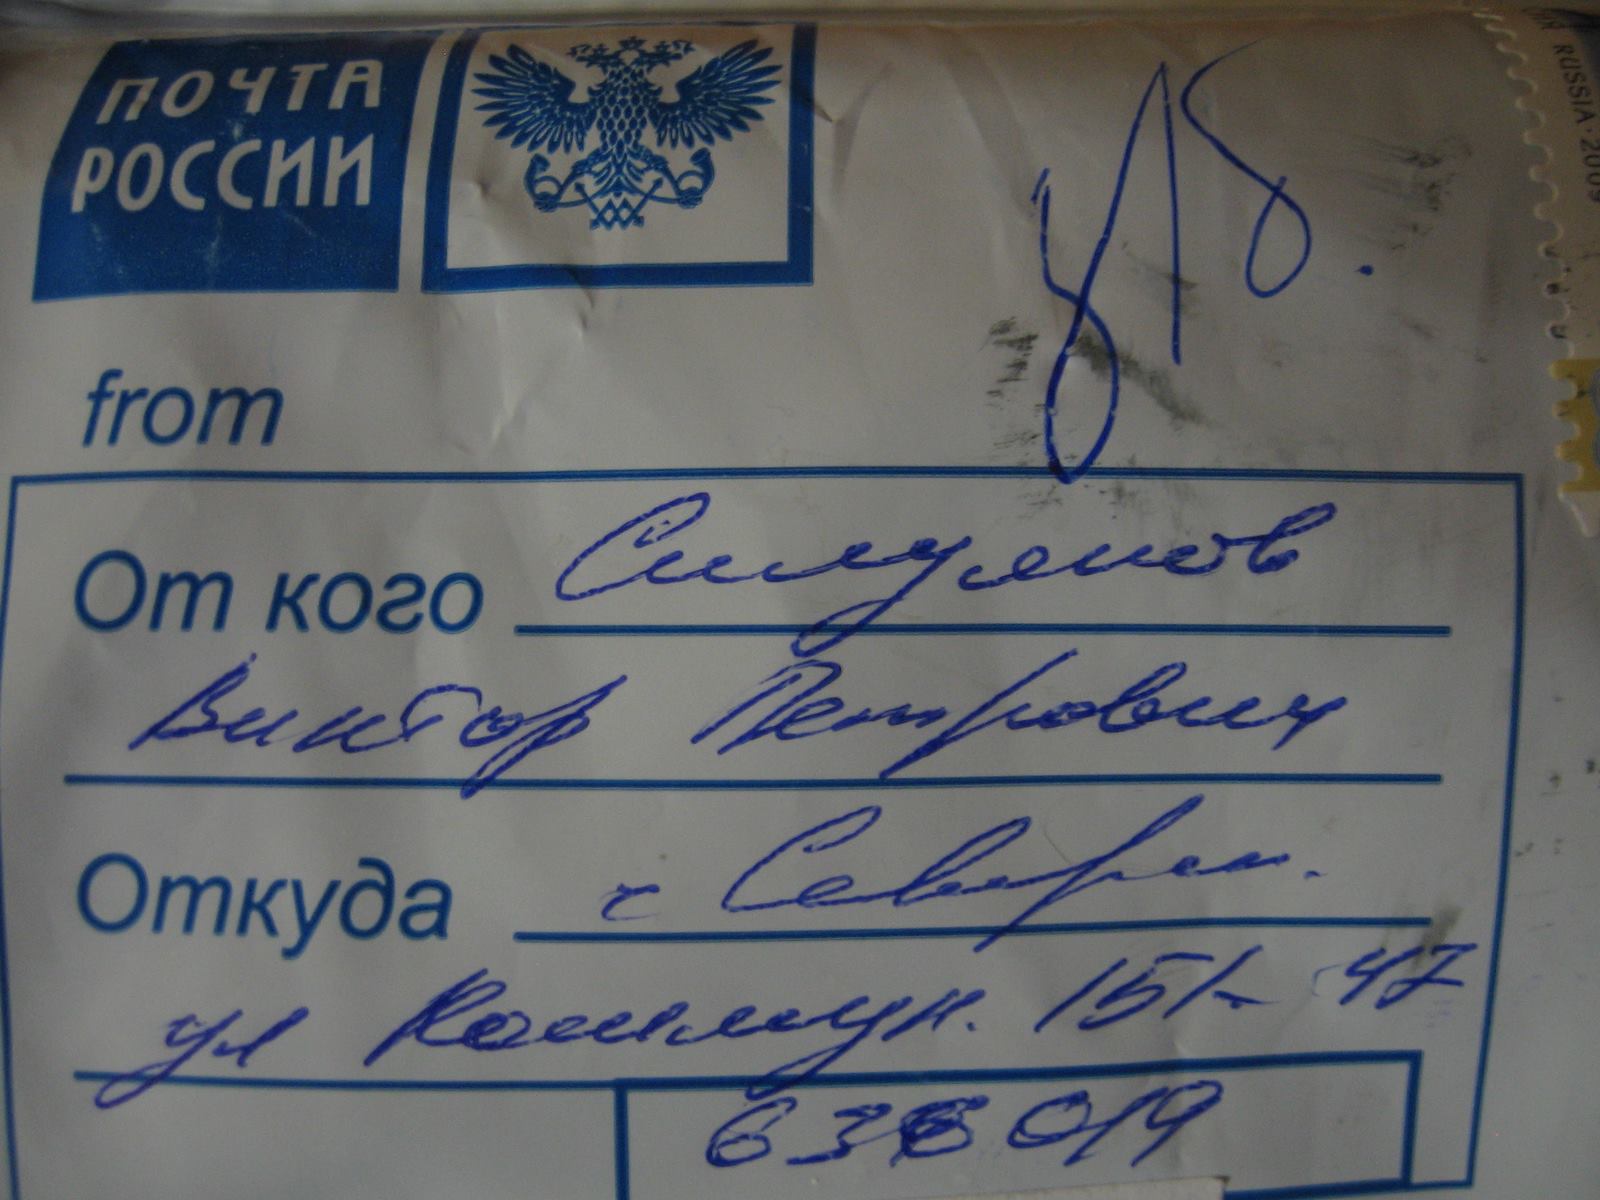 ПОЧТА
РОССИИ
RUSSIA·2009
from
От кого Силуянов
Виктор Петрович
Откуда г Северск.
ул Коммун. 151- 47
636019